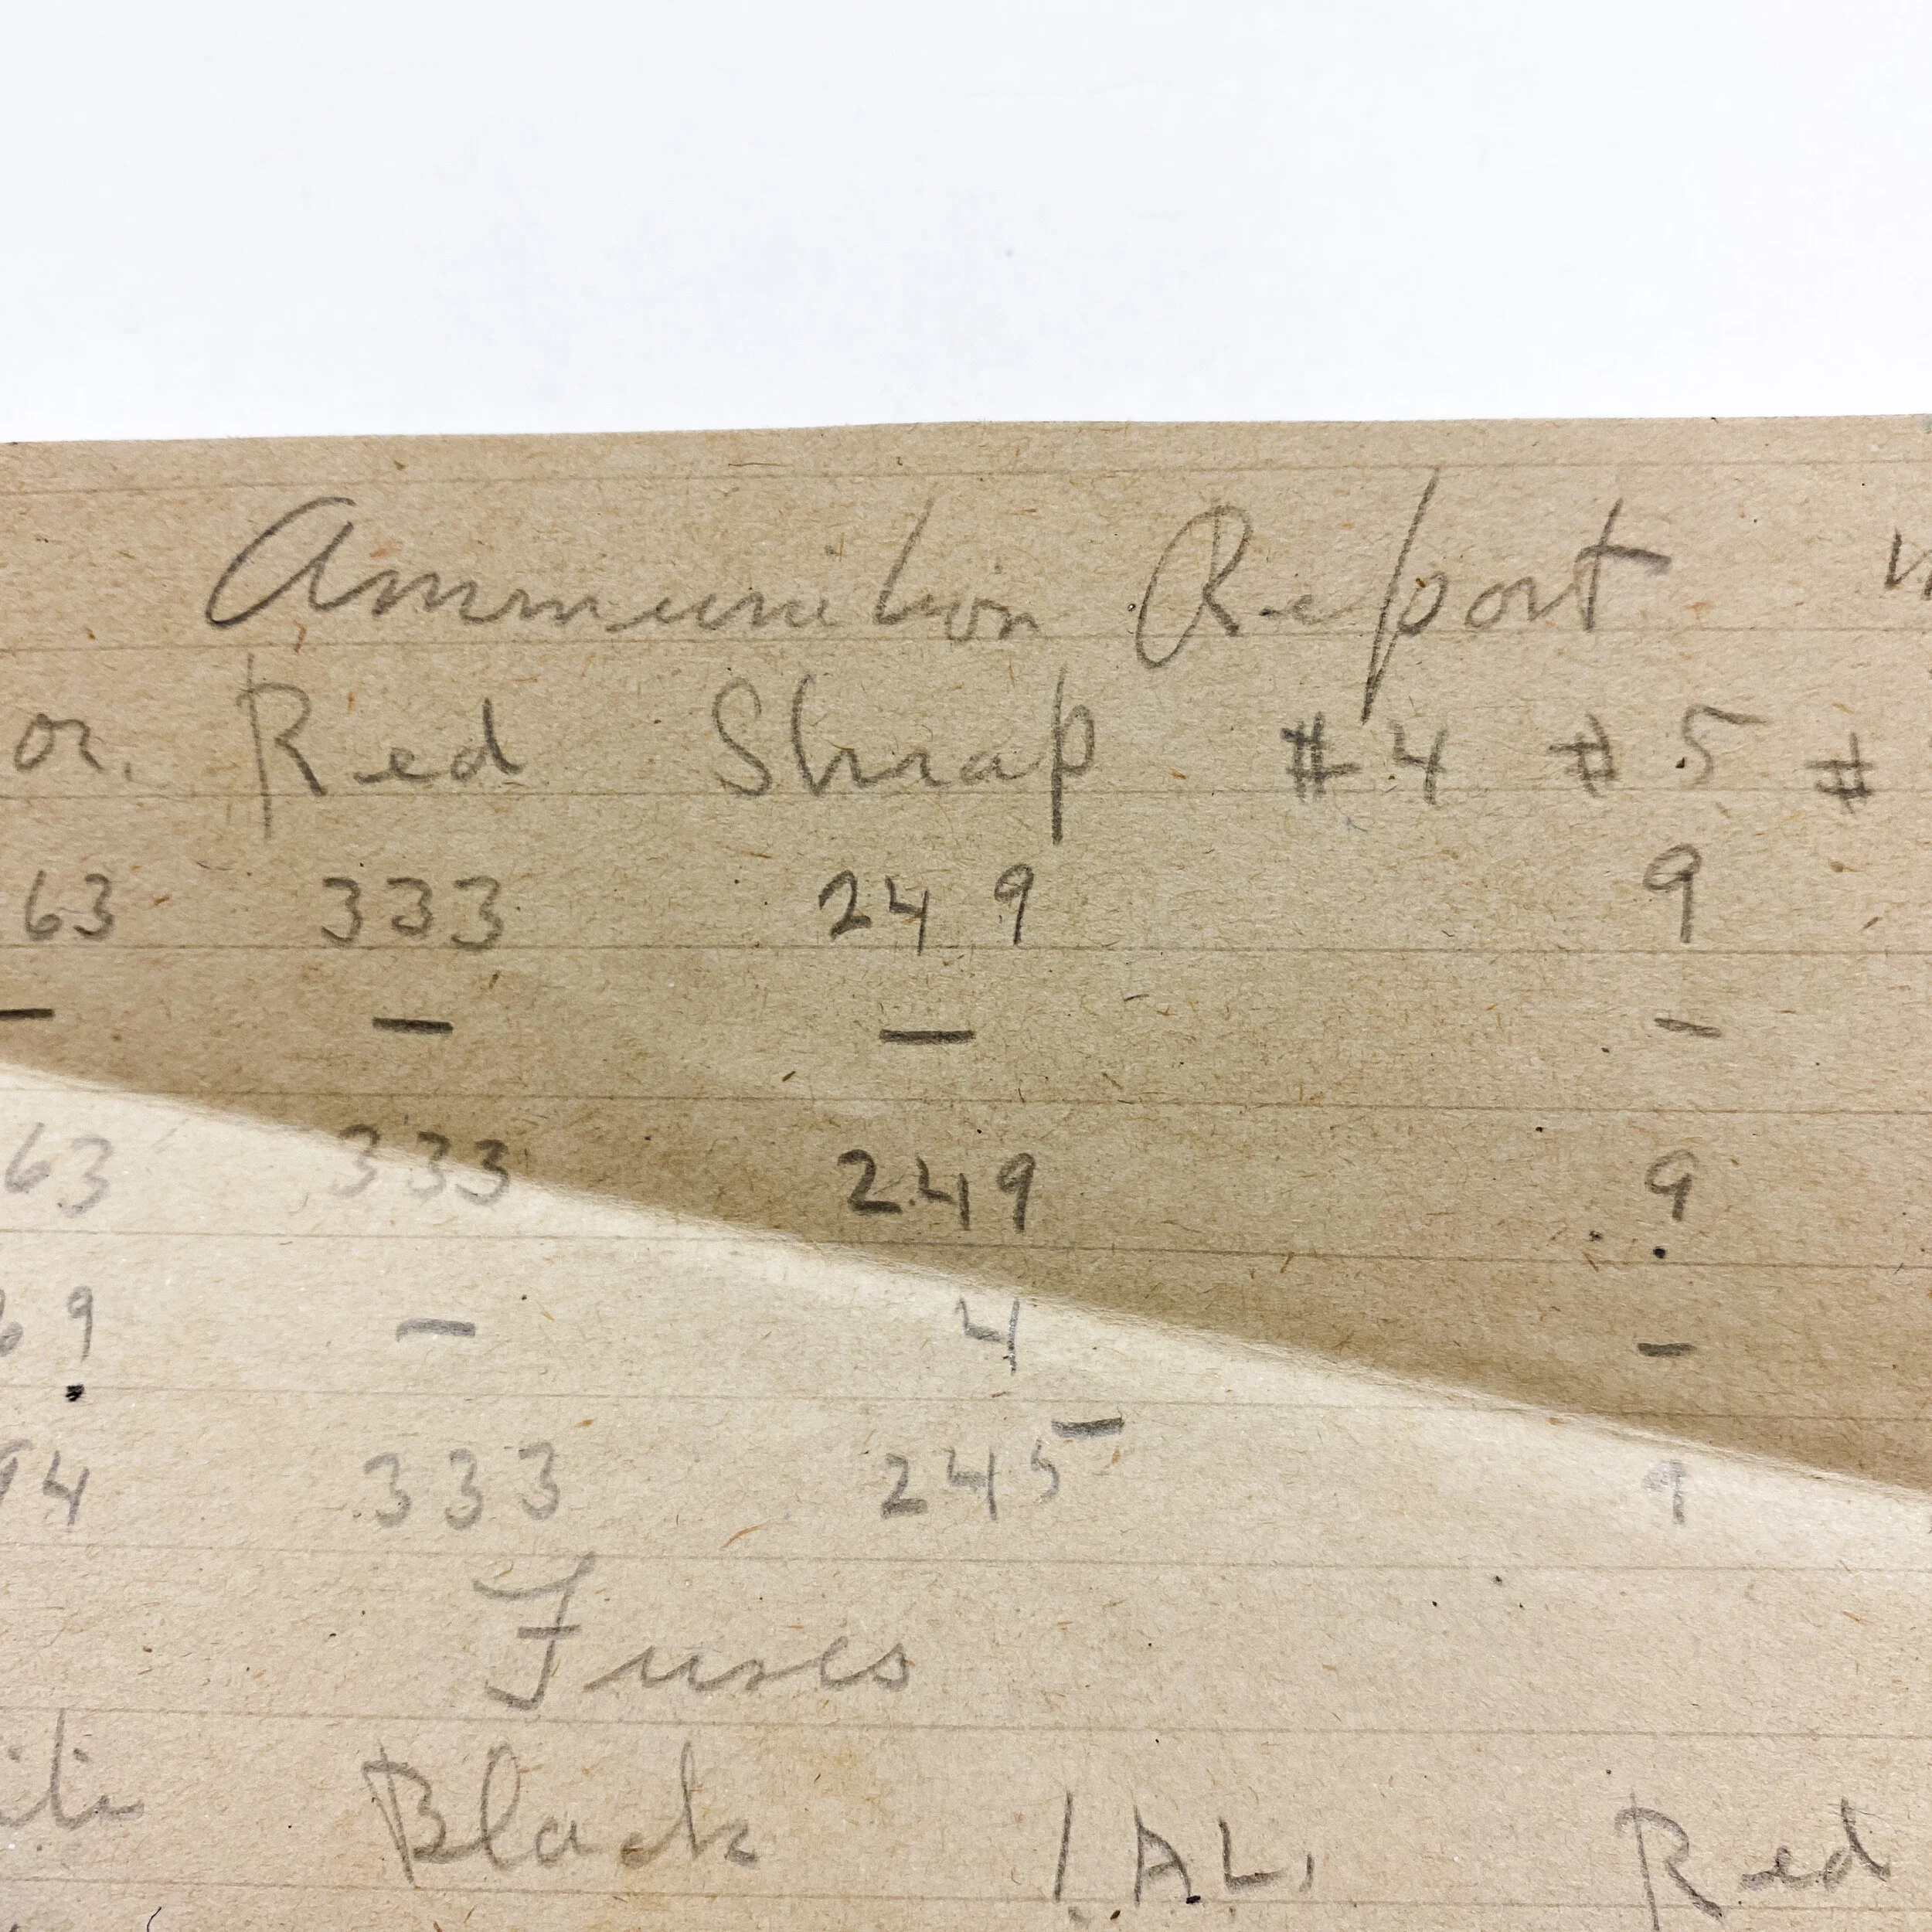 Ammunition Report
or. Red Shrap #4 #5 #
63 333 249 9
— — — —
63 333 249 9
69 — 4 —
94 333 245 9
Fuses
Black I.A.L. Red